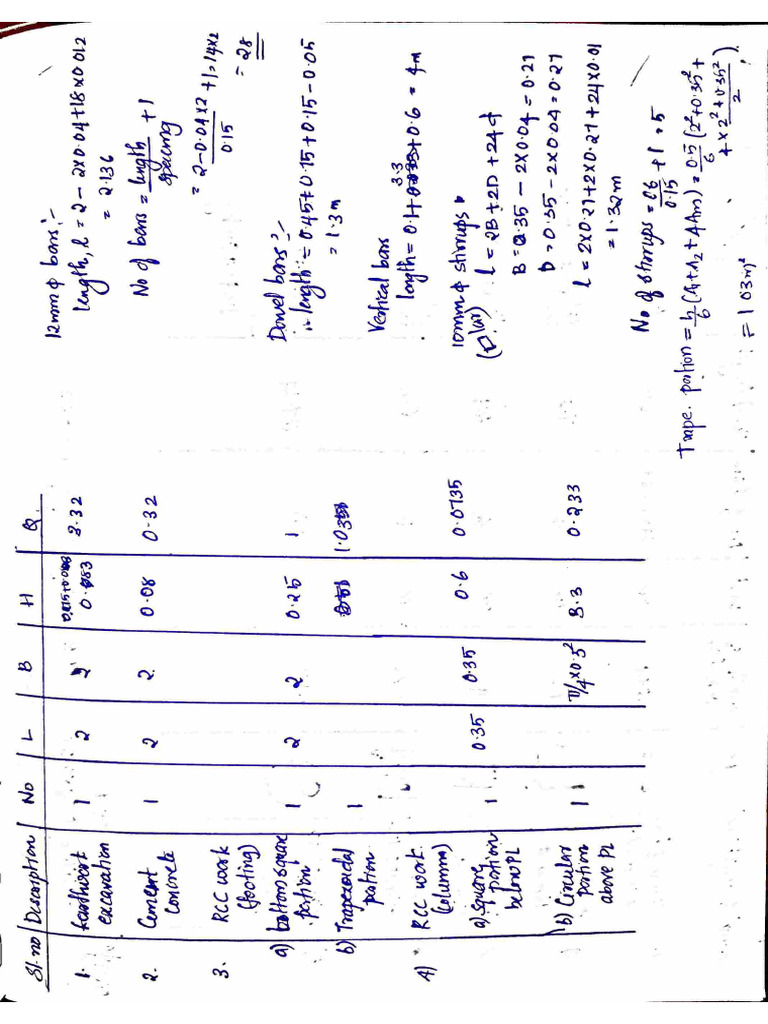 Sl.no | Description | No | L | B | H | Q
1. Earthwork excavation 1 2 2 8.32
2. Cement concrete 1 2 2 0.08 0.32
3. RCC work (footing)
a) bottom square portion 1 2 2 0.25 1
b) Trapezoidal portion 1 1.035
4) RCC work (columns)
a) square portion below PL 1 0.35 0.35 0.6 0.0735
b) Circular portion above PL 1 π/4 × 0.3² 3.3 0.233
12mm ϕ bars:-
length, l = 2 - 2×0.04+18×0.012
= 2.136
No of bars = length/spacing + 1
= 2-0.04×2/0.15 + 1 = 14×2
= 28
Dowel bars:-
∴ length = 0.45+0.15+0.15-0.05
= 1.3 m
Vertical bars
length = 0.1+3.3+0.6 = 4m
10mm ϕ stirrups
l = 2B+2D+24d
B = 0.35 - 2×0.04 = 0.27
D = 0.35 - 2×0.04 = 0.27
l = 2×0.27+2×0.27+24×0.01
= 1.32m
No of stirrups = 0.6/0.15 + 1 = 5
Trape. portion = h/6 (A1+A2+4Am) = 0.5/6 (2²+0.35²+
4×2²+0.35²/2)
= 1.03m³